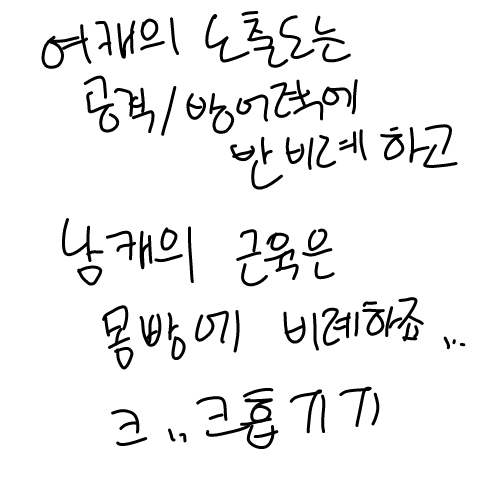 여캐의 노출도는
공격/방어력에
반비례하고
남캐의 근육은
몸빵에 비례하죠...
크..크흡기기